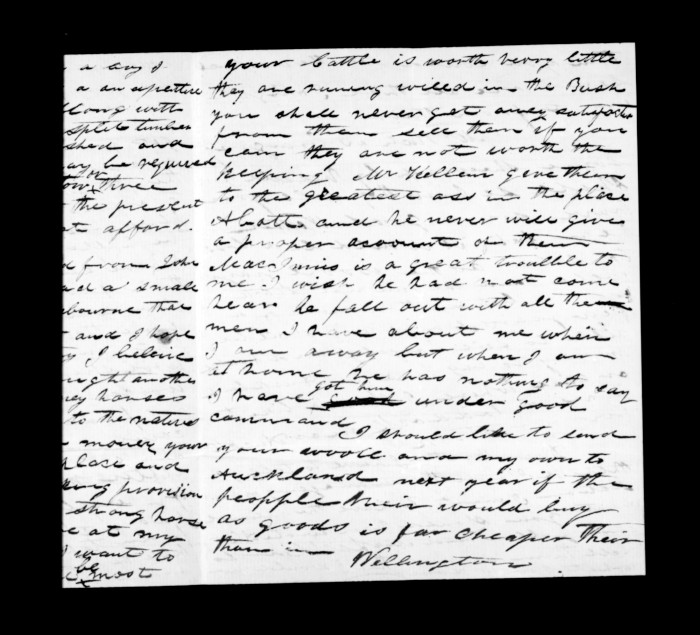 a any
a an expetture
long with
split timber
shed and
may be required
or
three
the present
not afford.
from John
had a small
bourne that
and I hope
I beleive
bought another
horses
to the natives
money your
place and
provision
strong horse
at my
I want to
be
most
your Cattle is worth verry little
they are runing willed in the Bush
you shall never get aney satisfacti
from them sell them if you
can they are not worth the
keeping Mr give them
to the greatest ass in the place
Abott and he never will give
a proper account of them
MacInnis is a great troubble to
me I wish he had not come
hear he fall out with all the
men I have about me when
I am away but when I am
at home he has nothing to say
got him
I have under good
command
I should like to send
your woole and my own to
Auckland next year if the
peopple their would buy
as goods is far cheaper their
than in
Wellington